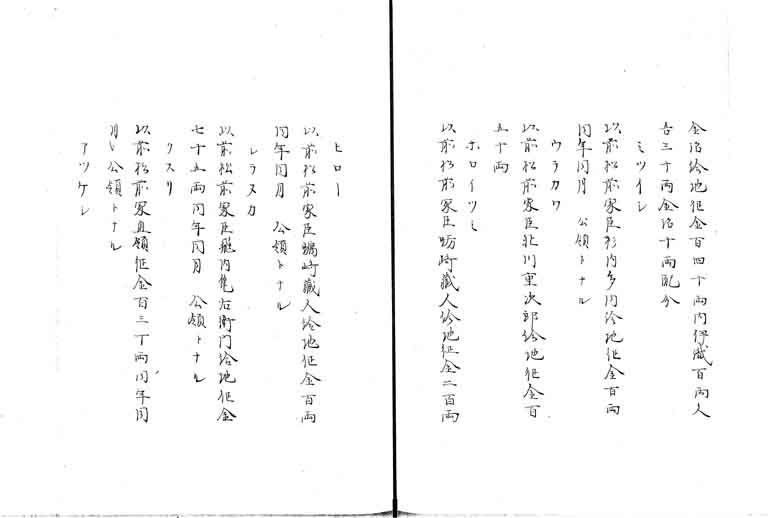 金治給地征金百四十両内伊蔵百両人
吉三十両金治十両配分
ミツイシ
以前松前家臣杉内多門给地征金百両
同年同月　公領トナル
ウラカワ
以前松前家臣北川重次郎給地征金百
五十両
ホロイツミ
以前松前家臣蛎崎蔵人給地征金二百両
ヒロー
以前松前家臣蠣崎蔵人給地征金百両
同年同月　公領トナル
シラヌカ
以前松前家臣飛内亀右衛門给地征金
七十五両同年同月　公領トナル
クスリ
以前松前家直領征金百三十両同年同
月〻公領トナル
アツケシ